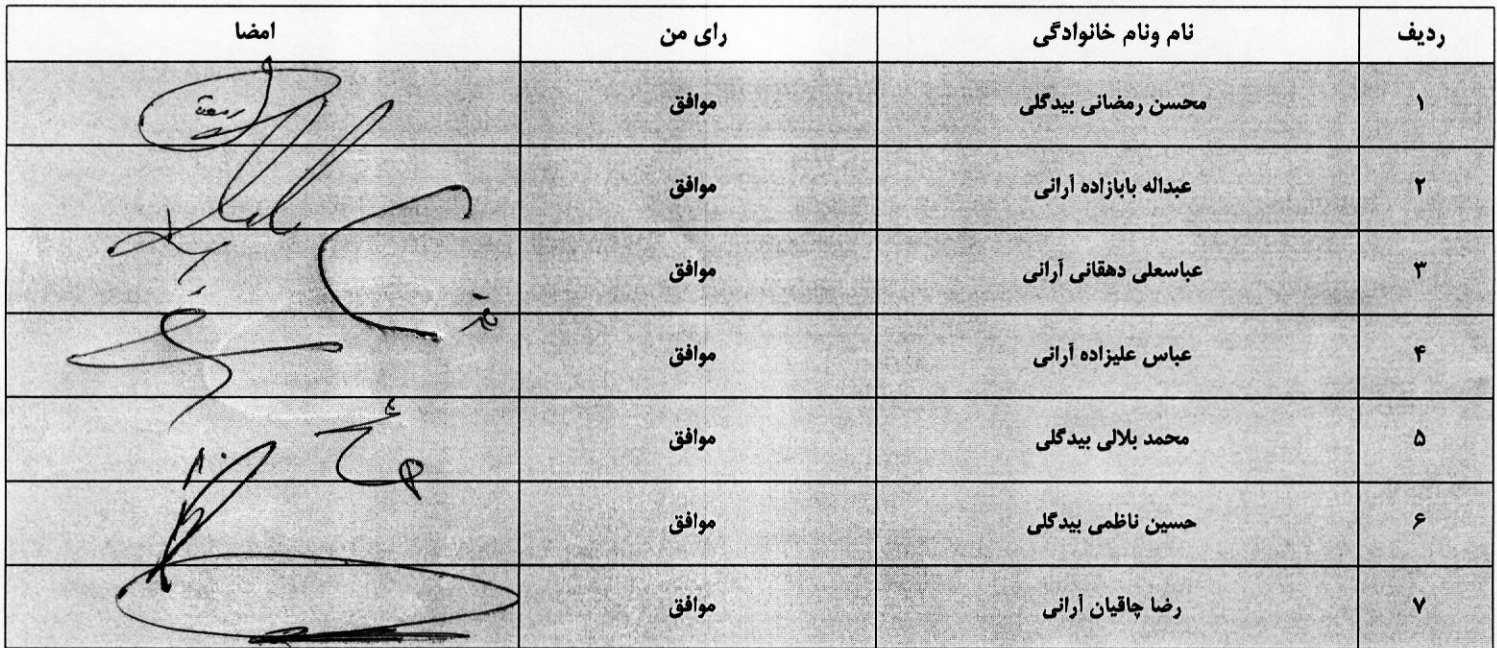 ردیف نام ونام خانوادگی رای من امضا
۱ محسن رمضانی بیدگلی موافق
۲ عبداله بابازاده آرانی موافق
۳ عباسعلی دهقانی آرانی موافق
۴ عباس علیزاده آرانی موافق
۵ محمد بلالی بیدگلی موافق
۶ حسین ناظمی بیدگلی موافق
۷ رضا چاقیان آرانی موافق